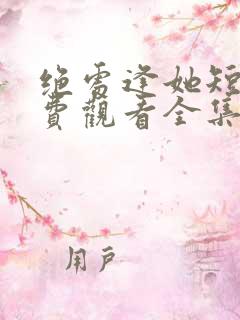 绝雪逢她短
费觀看全集
用户